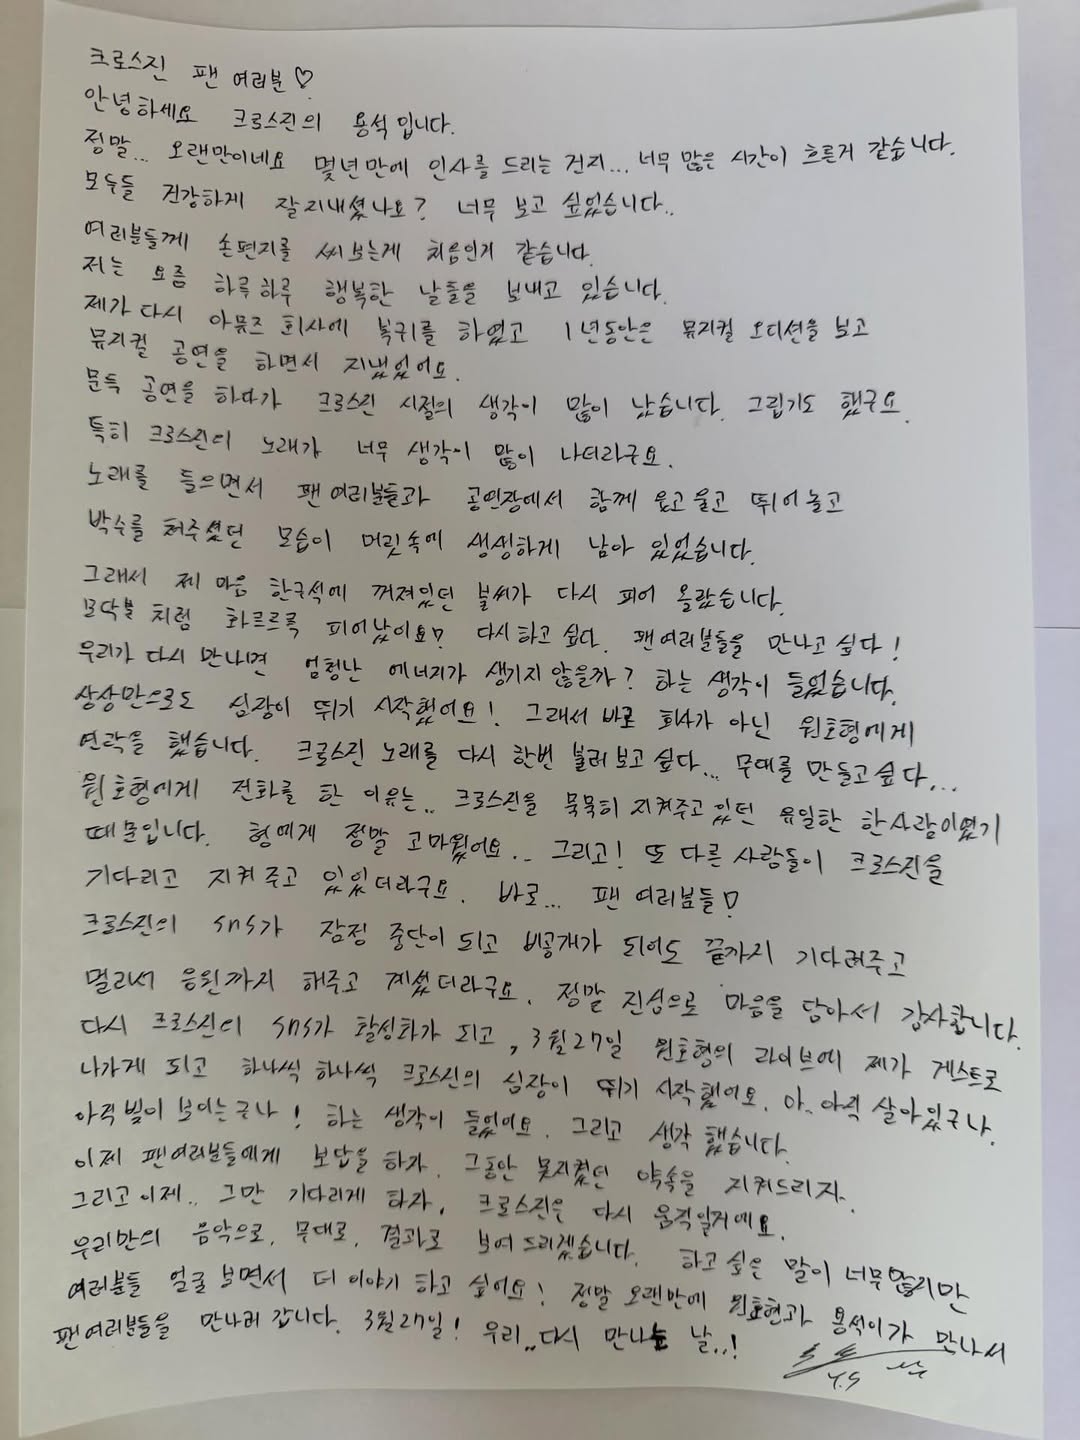 크로스진 팬 여러분♡
안녕하세요 크로스진의 용석입니다.
정말... 오랜만이네요 몇년만에 인사를 드리는 건지... 너무 많은 시간이 흐른거 같습니다.
모두들 건강하게 잘지내셨나요? 너무 보고 싶었습니다..
여러분들께 손편지를 써보는게 처음인거 같습니다.
저는 요즘 하루하루 행복한 날들을 보내고 있습니다.
제가 다시 아뮤즈 회사에 복귀를 하였고 1년동안은 뮤지컬 오디션을 보고
뮤지컬 공연을 하면서 지냈었어요.
문득 공연을 하다가 크로스진 시절의 생각이 많이 났습니다. 그립기도 했구요.
특히 크로스진의 노래가 너무 생각이 많이 나더라구요.
노래를 들으면서 팬여러분들과 공연장에서 함께 웃고 울고 뛰어 놀고
박수를 쳐주셨던 모습이 머릿속에 생생하게 남아 있었습니다.
그래서 제 마음 한구석에 꺼져있던 불씨가 다시 피어 올랐습니다.
모닥불처럼 화르르륵 피어났어요! 다시하고 싶다. 팬여러분들을 만나고 싶다!
우리가 다시 만나면 엄청난 에너지가 생기지 않을까? 하는 생각이 들었습니다.
상상만으로도 심장이 뛰기 시작했어요! 그래서 바로 회사가 아닌 원호형에게
연락을 했습니다. 크로스진 노래를 다시 한번 불러보고 싶다... 무대를 만들고싶다...
원호형에게 전화를 한 이유는.. 크로스진을 묵묵히 지켜주고 있던 유일한 한사람이였기
때문입니다. 형에게 정말 고마웠어요... 그리고! 또 다른 사람들이 크로스진을
기다리고 지켜주고 있었더라구요. 바로... 팬 여러분들!
크로스진의 SNS가 잠정 중단이 되고 비공개가 되어도 끝까지 기다려주고
멀리서 응원까지 해주고 계셨더라구요. 정말 진심으로 마음을 담아서 감사합니다.
다시 크로스진의 SNS가 활성화가 되고, 3월27일 원호형의 라이브에 제가 게스트로
나가게 되고 하나씩 하나씩 크로스진의 심장이 뛰기 시작했어요. 아.. 아직 살아있구나.
아직 빛이 보이는구나! 하는 생각이 들었어요. 그리고 생각했습니다.
이제 팬여러분들에게 보답을 하자. 그동안 못지켰던 약속을 지켜드리자.
그리고 이제.. 그만 기다리게 하자. 크로스진은 다시 움직일거에요.
우리만의 음악으로, 무대로, 결과로 보여드리겠습니다. 하고싶은 말이 너무많지만
여러분들 얼굴보면서 더 이야기 하고 싶어요! 정말 오랜만에 원호형과 용석이가 만나서
팬여러분들을 만나러 갑니다. 3월27일! 우리.. 다시 만나는 날..!
Y.S